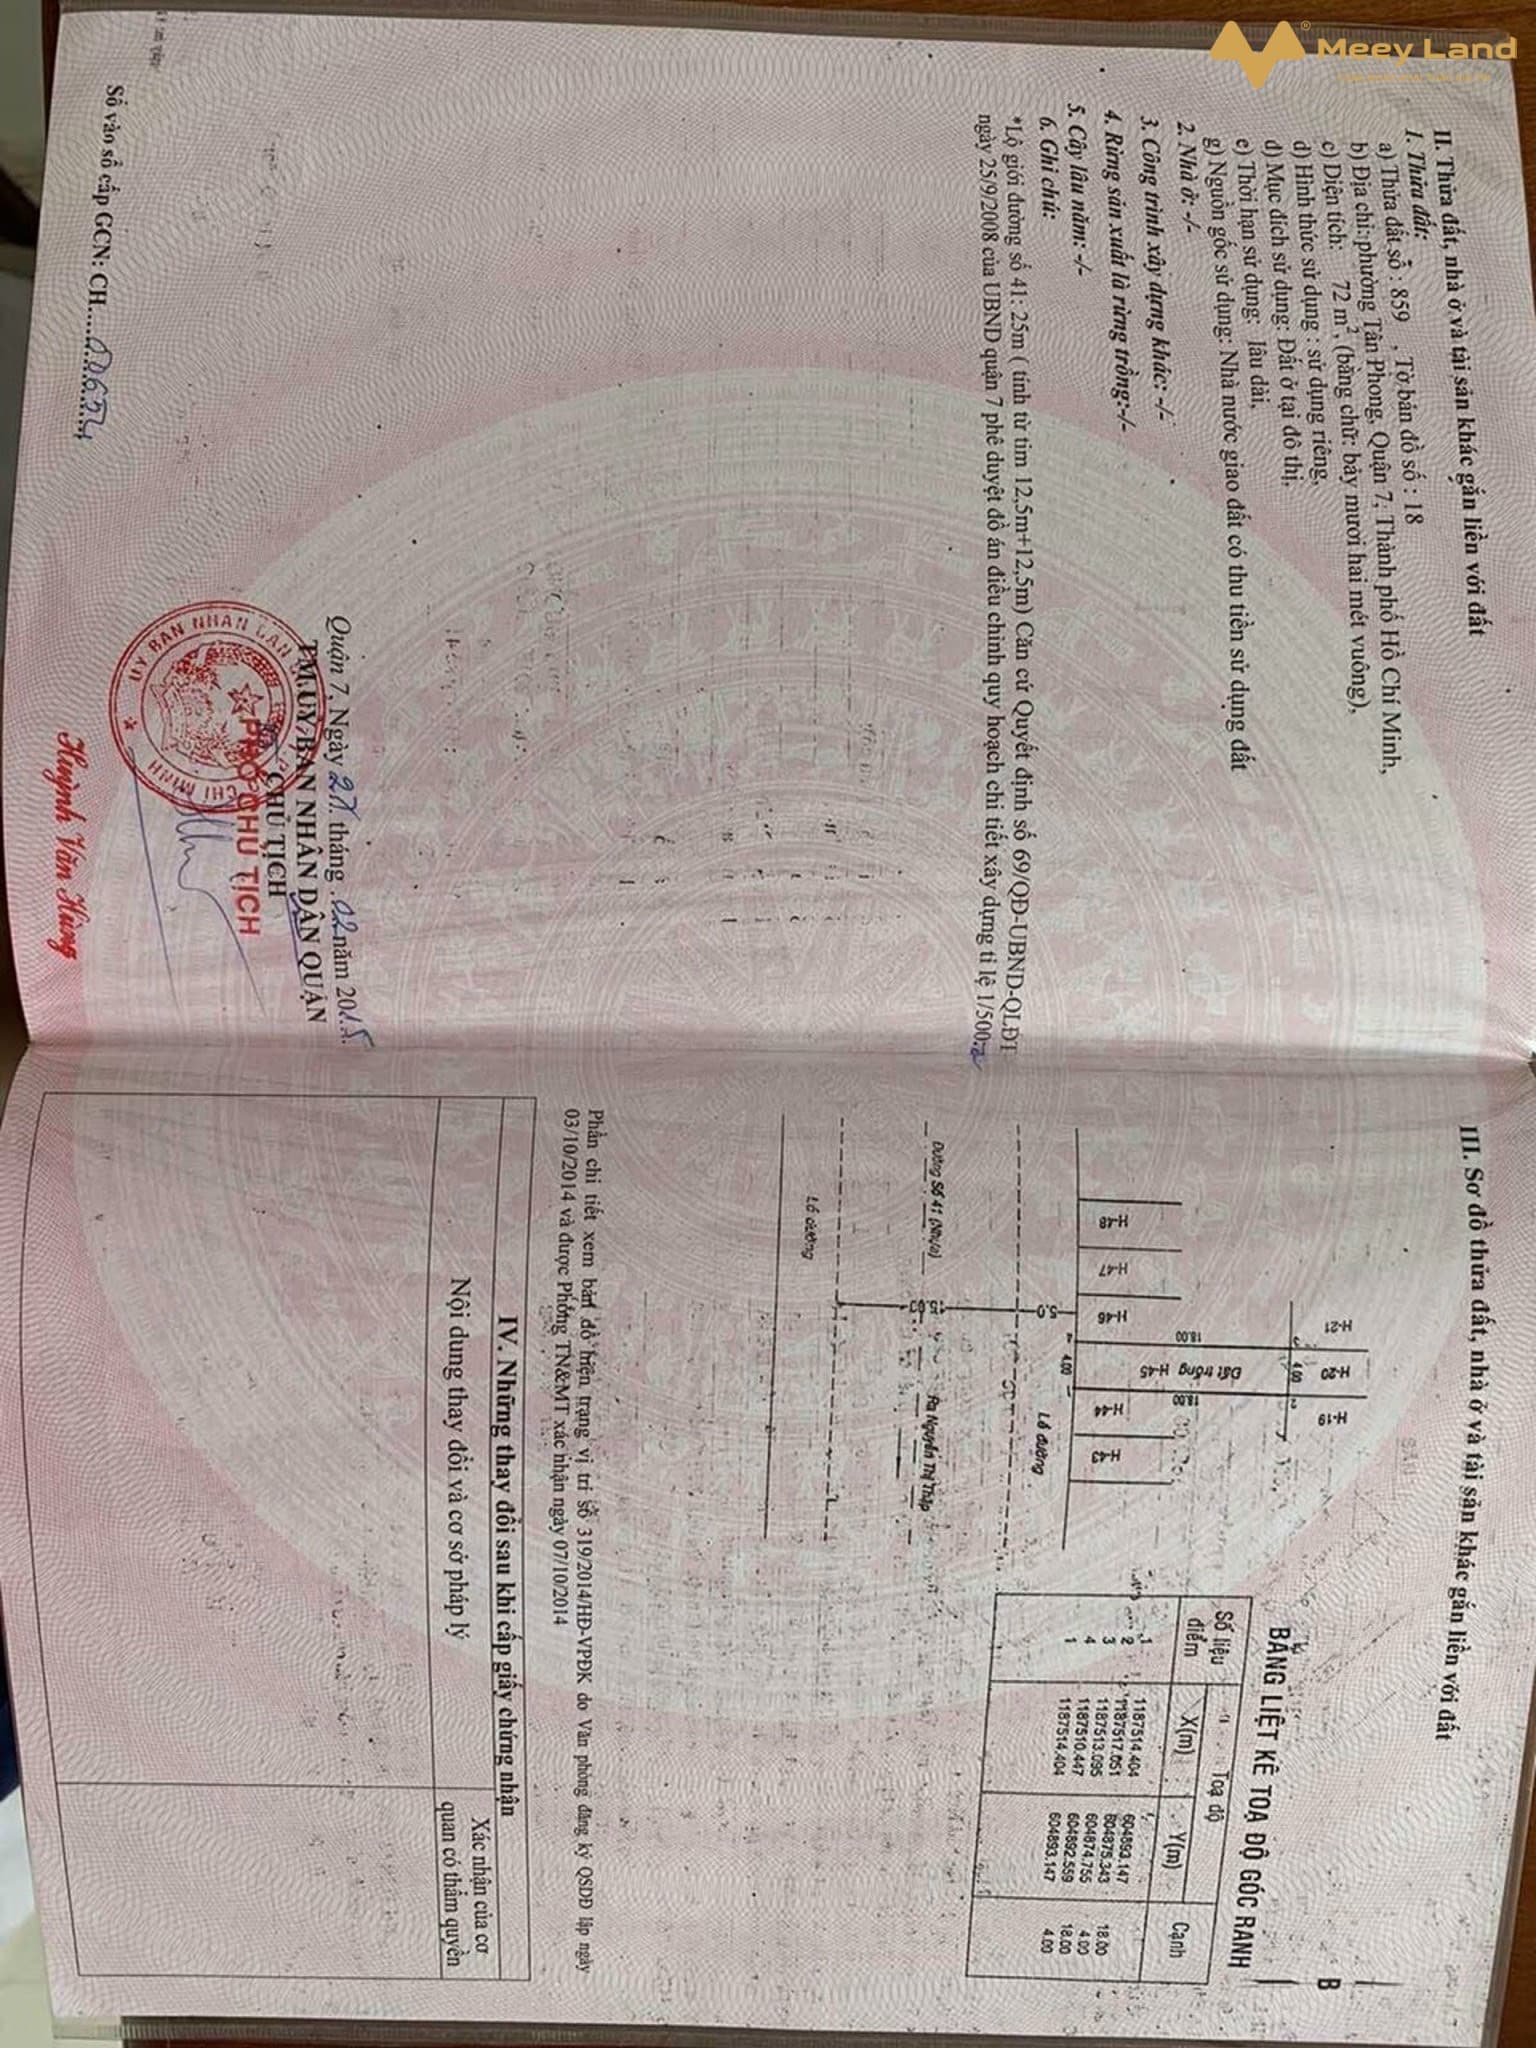 Meey Land
II. Thửa đất, nhà ở và tài sản khác gắn liền với đất
1. Thửa đất:
a) Thửa đất số : 859 , Tờ bản đồ số : 18
b) Địa chỉ: phường Tân Phong, Quận 7, Thành phố Hồ Chí Minh,
c) Diện tích: 72 m², (bằng chữ: bảy mươi hai mét vuông),
d) Hình thức sử dụng : sử dụng riêng,
đ) Mục đích sử dụng: Đất ở tại đô thị,
e) Thời hạn sử dụng: lâu dài,
g) Nguồn gốc sử dụng: Nhà nước giao đất có thu tiền sử dụng đất
2. Nhà ở: -/-
3. Công trình xây dựng khác: -/-
4. Rừng sản xuất là rừng trồng:-/-
5. Cây lâu năm: -/-
6. Ghi chú:
*Lộ giới đường số 41: 25m ( tính từ tim 12,5m+12,5m) Căn cứ Quyết định số 69/QĐ-UBND-QLĐT
ngày 25/9/2008 của UBND quận 7 phê duyệt đồ án điều chỉnh quy hoạch chi tiết xây dựng tỉ lệ 1/500.
Quận 7, Ngày 27 tháng 02 năm 2015
TM.ỦY BAN NHÂN DÂN QUẬN
CHỦ TỊCH
PHÓ CHỦ TỊCH
ỦY BAN NHÂN DÂN
CHÍ MINH
Huỳnh Văn Hùng
Số vào sổ cấp GCN: CH.....00654
III. Sơ đồ thửa đất, nhà ở và tài sản khác gắn liền với đất
B
H-21
H-20
H-19
4.00
18.00
18.00
H-48
H-47
H-46
Đất trống H-45
H-44
H-43
4.00
5.0
Lề đường
Đường Số 41 (Nhựa)
15.0
Ra Nguyễn Thị Thập
Lề đường
BẢNG LIỆT KÊ TOẠ ĐỘ GÓC RANH
Số liệu điểm Toạ độ Cạnh
X(m) Y(m)
1 1187514.404 604893.147
2 1187517.051 604875.343 18.00
3 1187513.095 604874.755 4.00
4 1187510.447 604892.559 18.00
1 1187514.404 604893.147 4.00
Phần chi tiết xem bản đồ hiện trạng vị trí số 319/2014/HĐ-VPĐK do Văn phòng đăng ký QSDĐ lập ngày
03/10/2014 và được Phòng TN&MT xác nhận ngày 07/10/2014
IV. Những thay đổi sau khi cấp giấy chứng nhận
Nội dung thay đổi và cơ sở pháp lý
Xác nhận của cơ
quan có thẩm quyền